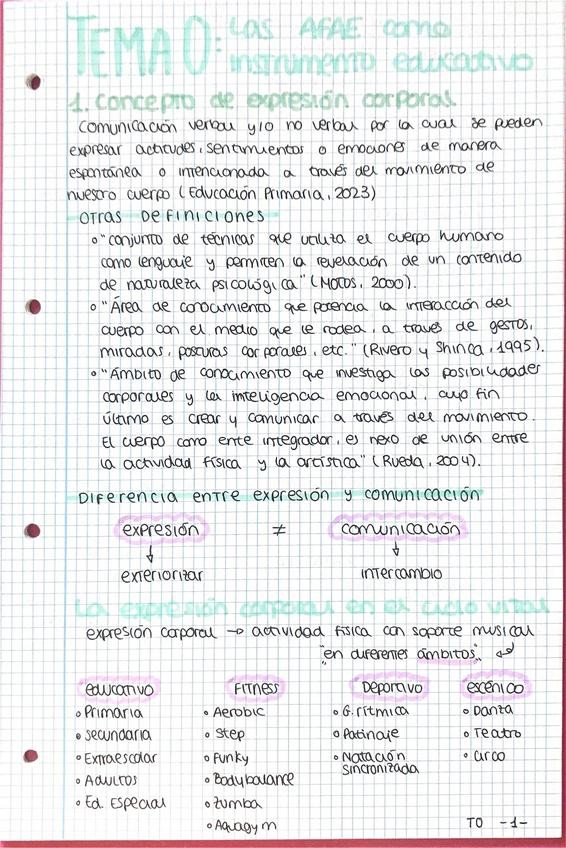 TEMA 0: Las AFAE como
instrumento educativo
1. Concepto de expresión corporal
Comunicación verbal y/o no verbal por la cual se pueden
expresar actitudes, sentimientos o emociones de manera
espontánea o intencionada a través del movimiento de
nuestro cuerpo (Educación Primaria, 2023)
OTRAS DEFINICIONES
o "conjunto de técnicas que utiliza el cuerpo humano
como lenguaje y permiten la revelación de un contenido
de naturaleza psicológica" (Motos, 2000).
o "Área de conocimiento que potencia la interacción del
cuerpo con el medio que le rodea, a través de gestos,
miradas, posturas corporales, etc." (Rivero y Shinca, 1995).
o "Ámbito de conocimiento que investiga las posibilidades
corporales y la inteligencia emocional, cuyo fin
último es crear y comunicar a través del movimiento.
El cuerpo como ente integrador, es nexo de unión entre
la actividad física y la artística" (Rueda, 2004).
DIFERENCIA ENTRE EXPRESIÓN Y COMUNICACIÓN
expresión ≠ comunicación
↓ ↓
exteriorizar intercambio
La expresión corporal en el ciclo vital
expresión corporal → actividad física con soporte musical
"en diferentes ámbitos"
educativo
o Primaria
o Secundaria
o Extraescolar
o Adultos
o Ed. Especial
Fitness
o Aerobic
o Step
o Funky
o Bodybalance
o Zumba
o Aquagym
Deportivo
o G. rítmica
o Patinaje
o Natación
sincronizada
escénico
o Danza
o Teatro
o Circo
T0 -1-